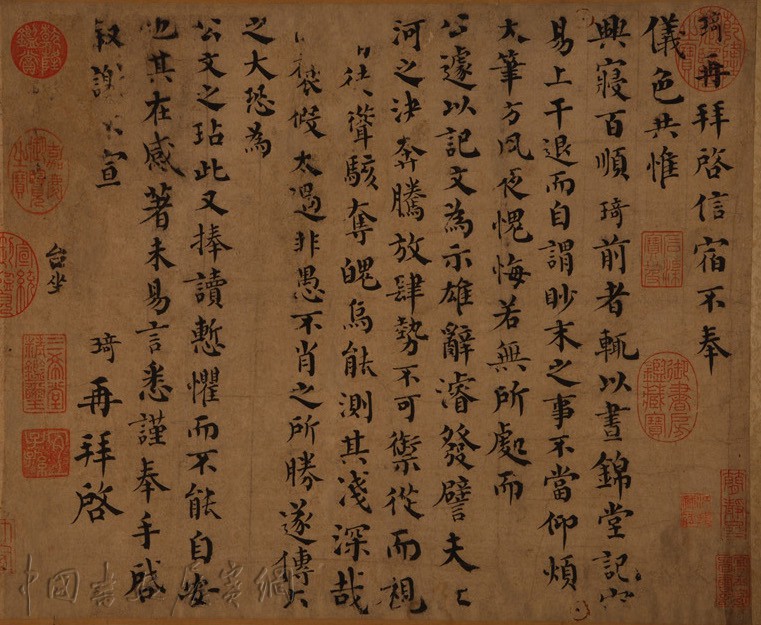 琦再拜啓信宿不奉
儀色共惟
興寢百順琦前者輒以晝錦堂記容
易上干退而自謂眇末之事不當仰煩
大筆方夙夜愧悔若無所處而
公遽以記文為示雄辭濬發譬夫
河之決奔騰放肆勢不可禦從而視
徒聳駭奪魄烏能測其淺深哉
褒假太過非愚不肖之所勝遂傳
之大恐為
公文之玷此又捧讀慙懼而不能自安
也其在感著未易言悉謹奉手啓
叙謝不宣
琦再拜啓
台坐
石渠寶笈
御書房鑑藏寶
乾隆鑑賞
嘉慶御覽之寶
三希堂精鑑璽
宜子孫
中國書法展賽網